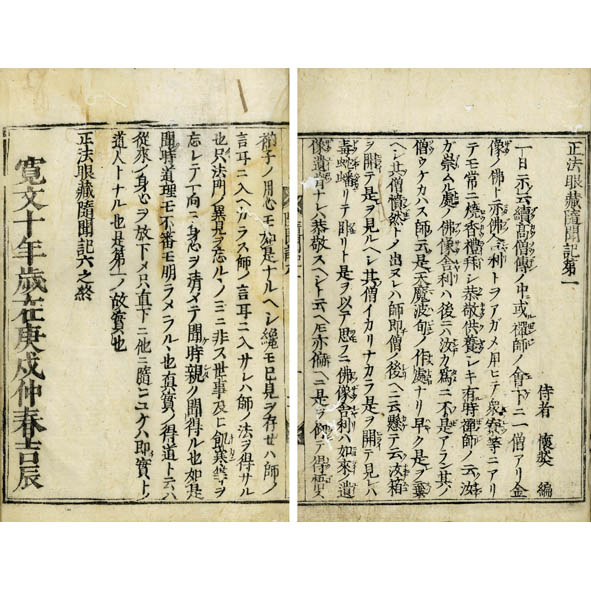 正法眼藏隨聞記第一
侍者 懷奘 編
一日示云續高僧傳ノ中或禪師ノ會下ニ一僧アリ金
像ノ佛ト亦佛舎利トヲアガメ用ヒテ衆寮等ニアリ
テモ常ニ燒香禮拜シ恭敬供養シキ有時禪師ノ云汝
ガ崇ムル處ノ佛像舎利ハ後ニハ汝カ爲ニ不是アラン其ノ
僧ウケカハス師云是天魔波旬ノ作處ナリ早ク是ヲ棄
ヘシ其僧憤然トノ出ヌレハ師即僧ノ後ヘニ云懸テ云汝箱
ヲ開テ是ヲ見ルヘシ其僧イカリナカラ是ヲ開テ見レハ
毒蛇蟠リテ卧リト是ヲ以テ思フニ佛像舎利ハ如來ノ遺
像遺骨ナレハ恭敬スヘシト云ヘ𪜈亦偏ヘニ是ヲ仰テ得悟ス
禪子ノ用心モ如是ナルヘシ纔モ己見ヲ存セハ師ノ
言耳ニ入ヘカラス師ノ言耳ニ入サレハ師ノ法ヲ得サル
也只法門ノ異見ヲ忘ルヽノミニ非ス世事及ヒ飢寒等ヲ
忘レテ一向ニ身心ヲ清メテ聞時親ク聞得ル也如是
聞時道理モ不審モ明ラメラルヽ也眞實ノ得道ト云ハ
從來ノ身心ヲ放下メ只直下ニ他ニ隨ヒユケハ即實トノ
道人トナル也是第一ノ故實也
正法眼藏隨聞記六之終
寛文十年歳在庚戌仲春吉辰